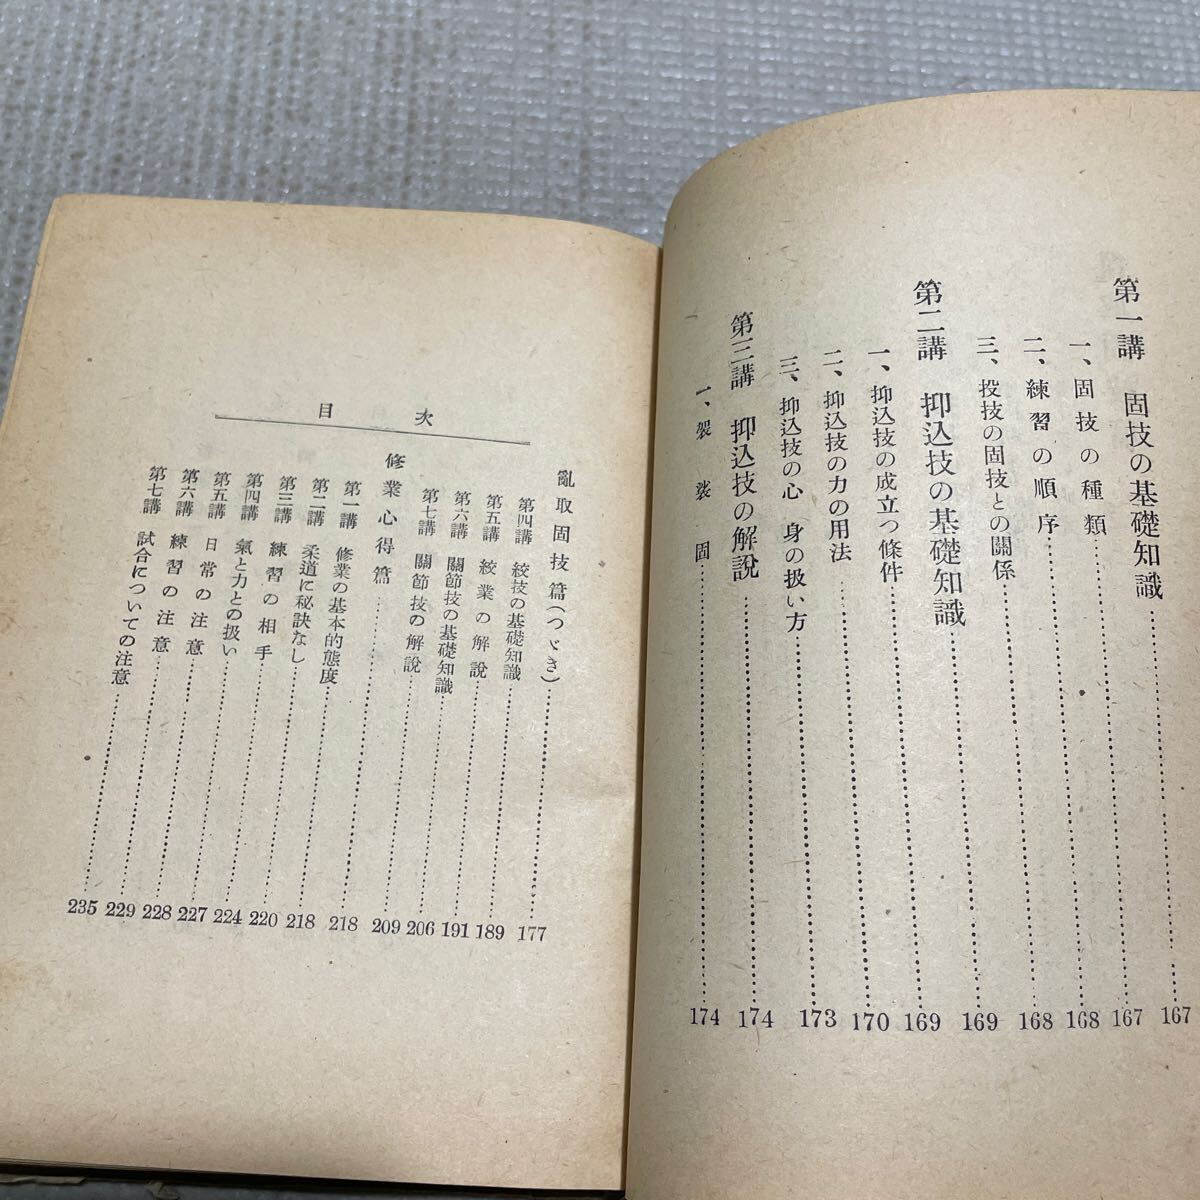 第一講　固技の基礎知識………167
一、固技の種類………167
二、練習の順序………168
三、投技の固技との關係………168
第二講　抑込技の基礎知識………169
一、抑込技の成立つ條件………169
二、抑込技の力の用法………170
三、抑込技の心　身の扱い方………173
第三講　抑込技の解說………174
一、袈裟固………174
目次
亂取固技篇(つゞき)………177
第四講　絞技の基礎知識………189
第五講　絞業の解說………191
第六講　關節技の基礎知識………206
第七講　關節技の解說………209
修業心得篇………218
第一講　修業の基本的態度………218
第二講　柔道に秘訣なし………220
第三講　練習の相手………224
第四講　氣と力との扱い………227
第五講　日常の注意………228
第六講　練習の注意………229
第七講　試合についての注意………235